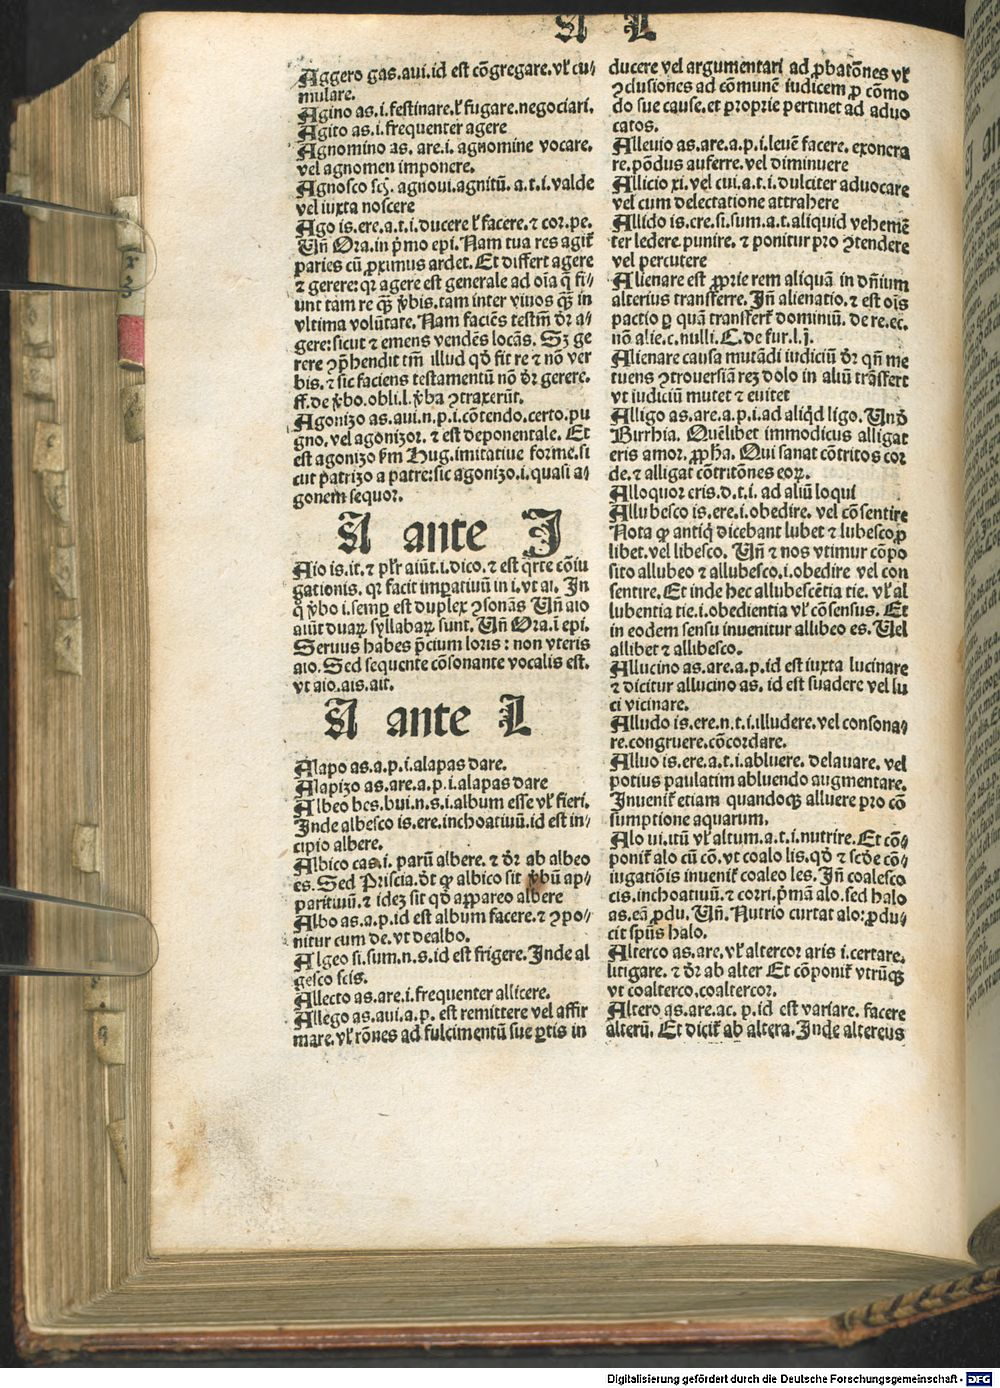 A L
Aggero gas.aui.id est cōgregare.vł cu⸗
mulare.
Agino as.i.festinare.ł fugare.negociari.
Agito as.i.frequenter agere
Agnomino as. are.i. agnomine vocare.
vel agnomen imponere.
Agnosco agnoui.agnitū. a.t.i.valde
vel iuxta noscere
Ago is.ere.a.t.i.ducere ł facere.⁊ cor.pe.
Vñ Ora.in p̄mo epi. Nam tua res agit᷑
paries cū ꝓximus ardet. Et differt agere
⁊ gerere: qꝛ agere est generale ad oīa q̄ fi⸗
unt tam re qꝫ v̄bis.tam inter viuos qꝫ in
vltima volūtate. Nam faciēs testm̄ dr̄ a⸗
gere: sicut ⁊ emens vendēs locās. Sꝫ ge
rere ꝯp̄hendit tm̄ illud qd̄ fit re ⁊ nō ver
bis. ⁊ sic faciens testamentū nō dr̄ gerere.
ff.de v̄bo.obli.l.v̄ba ꝯtraxerūt.
Agonizo as.aui.n.p.i.cōtendo.certo.pu
gno. vel agonizoꝛ. ⁊ est deponentale. Et
est agonizo ẜm Hug.imitatiue forme.si
cut patrizo a patre: sic agonizo.i.quasi a⸗
gonem sequoꝛ.
A ante I
Aio is.it.⁊ plr̄ aiūt.i.dico.⁊ est q̄rte cōiu
gationis. qꝛ facit impatiuū in i.vt ai. In
q̊ v̄bo i.semꝑ est duplex ꝯsonās Vñ aio
aiūt duaꝝ syllabaꝝ sunt. Vñ Ora.i epi.
Seruus habes p̄cium loris: non vteris
aio. Sed sequente cōsonante vocalis est.
vt aio.ais.ait.
A ante L
Alapo as.a.p.i.alapas dare.
Alapizo as.are.a.p.i.alapas dare
Albeo bes.bui.n.s.i.album esse vł fieri.
Inde albesco is.ere.inchoatiuū.id est in⸗
cipio albere.
Albico cas.i. parū albere. ⁊ dr̄ ab albeo
es. Sed Priscia.dt̄ qꝙ albico sit v̄bū ap⸗
paritiuū.⁊ idez sit qd̄ appareo albere
Albo as.a.p.id est album facere.⁊ ꝯpo⸗
nitur cum de.vt dealbo.
Algeo si.sum.n.s.id est frigere. Inde al
gesco scis.
Allecto as.are.i.frequenter allicere.
Allego as.aui.a.p. est remittere vel affir
mare.vł rōnes ad fulcimentū sue ꝑtis in
ducere vel argumentari ad ꝓbatōnes vł
ꝯclusiones ad cōmunē iudicem ꝓ cōmo
do sue cause.et proprie pertinet ad aduo
catos.
Alleuio as.are.a.p.i.leuē facere. exonera
re.pōdus auferre.vel diminuere
Allicio xi.vel cui.a.t.i.dulciter aduocare
vel cum delectatione attrahere
Allido is.ere.si.sum.a.t.aliquid vehemē
ter ledere.punire. ⁊ ponitur pro ꝯtendere
vel percutere
Alienare est ꝓprie rem aliquā in dn̄ium
alterius transferre. Iñ alienatio.⁊ est oīs
pactio ꝑ quā transfert᷑ dominiū. de re.ec.
nō alie.c.nulli.C.de fur.l.j.
Alienare causa mutādi iudiciū dr̄ qñ me
tuens ꝯtrouersiā rez dolo in aliū trāsfert
vt iudiciū mutet ⁊ euitet
Alligo as.are.a.p.i.ad aliqd ligo. Vnd̄
Birrhia. Quēlibet immodicus alligat
eris amor. ꝓpħa. Qui sanat cōtritos cor
de.⁊ alligat cōtritōnes eoꝝ.
Alloquor eris.d.t.i. ad aliū loqui
Allubesco is.ere.i.obedire. vel cōsentire
Nota qꝙ antiq̇ dicebant lubet ⁊ lubesco ꝓ
libet.vel libesco. Vñ ⁊ nos vtimur cōpo
sito allubeo ⁊ allubesco.i.obedire vel con
sentire. Et inde hec allubescētia tie. vł al
lubentia tie.i.obedientia vł cōsensus. Et
in eodem sensu inuenitur allibeo es. Vel
allibet ⁊ allibesco.
Allucino as.are.a.p.id est iuxta lucinare
⁊ dicitur allucino as. id est suadere vel lu
ci vicinare.
Alludo is.ere.n.t.i.illudere.vel consona⸗
re.congruere.cōcordare.
Alluo is.ere.a.t.i.abluere. delauare. vel
potius paulatim abluendo augmentare.
Inuenit᷑ etiam quandoqꝫ alluere pro cō
sumptione aquarum.
Alo ui.itū vł altum.a.t.i.nutrire. Et cō⸗
ponit᷑ alo cū cō.vt coalo lis.qd̄ ⁊ scd̄e cō⸗
iugatiōis inuenit᷑ coaleo les. Iñ coalesco
cis.inchoatiuū.⁊ corri.p̄mā alo.sed halo
as.eā ꝓdu. Vñ. Nutrio curtat alo: ꝓdu⸗
cit spūs halo.
Alterco as.are.vł altercor aris i.certare.
litigare. ⁊ dr̄ ab alter Et cōponit᷑ vtrūqꝫ
vt coalterco.coaltercor.
Altero as.are.ac. p.id est variare. facere
alterū. Et dicit᷑ ab altera. Inde altereus
Digitalisierung gefördert durch die Deutsche Forschungsgemeinschaft - DFG